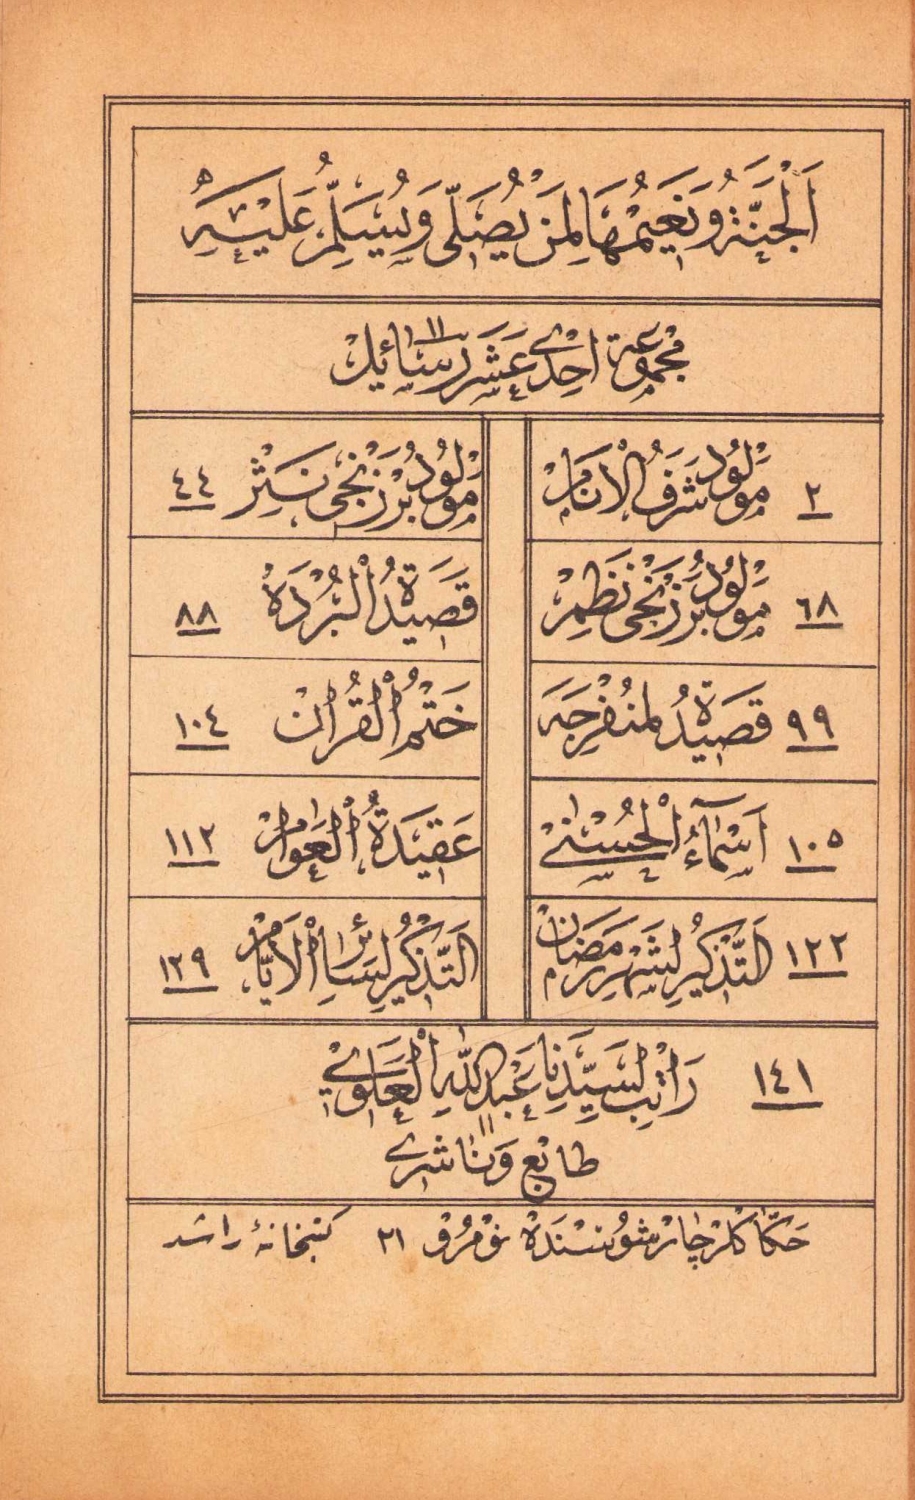 اَلْجَنَّةُ وَنَعِيْمُهَا لِمَنْ يُصَلِّى وَيُسَلِّمُ عَلَيْهِ
مجموعة احدى عشر رسائل ١١
٢ مَوْلُودُ شَرَفُ الْاَنَامْ
مَوْلُودُ بَرْزَنْجِى نَثِرْ ٤٤
٦٨ مَوْلُودُ بَرْزَنْجِى نَظِمْ
قَصَيْدَةُ الْبُرْدَهْ ٨٨
٩٩ قَصَيْدَةُ لمنْفَرِجَه
خَتْمُ الْقُرْانْ ١٠٤
١٠٥ اَسْمَآءُ الْحُسْنٰى
عَقِيْدَةُ الْعَوَامْ ١١٢
١٢٢ اَلتَّذْكِيْرُ لِشَهْرِ رَمَضَانْ
اَلتَّذْكِيْرُ لِسَائِرِ الْاَيَّامْ ١٢٩
١٤١ رَاتِبْ لسَيِّدِنَا عَبْدِاللّٰهِ الْعَلَوِيْ
١١
طابع وَنَاشرى
حَكَّاكْلَرْ چَارْشُوسنْدَهْ نوْمرُو ٢١ كتبخانهٔ راشد